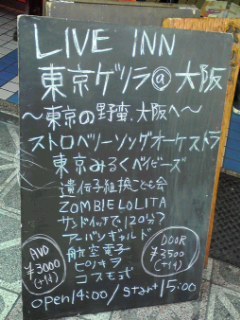 LIVE INN
東京ゲリラ@大阪
～東京の野蛮、大阪へ～
ストロベリーソングオーケストラ
東京みるくベイビーズ
遺伝子組換こども会
ZOMBIE LOLITA
サンドイッチで120分?
アーバンギャルド
航空電子
ピノキヲ
コスモ式
ADV
¥3000
(+1d)
DOOR
¥3500
(+1d)
open14:00/start15:00